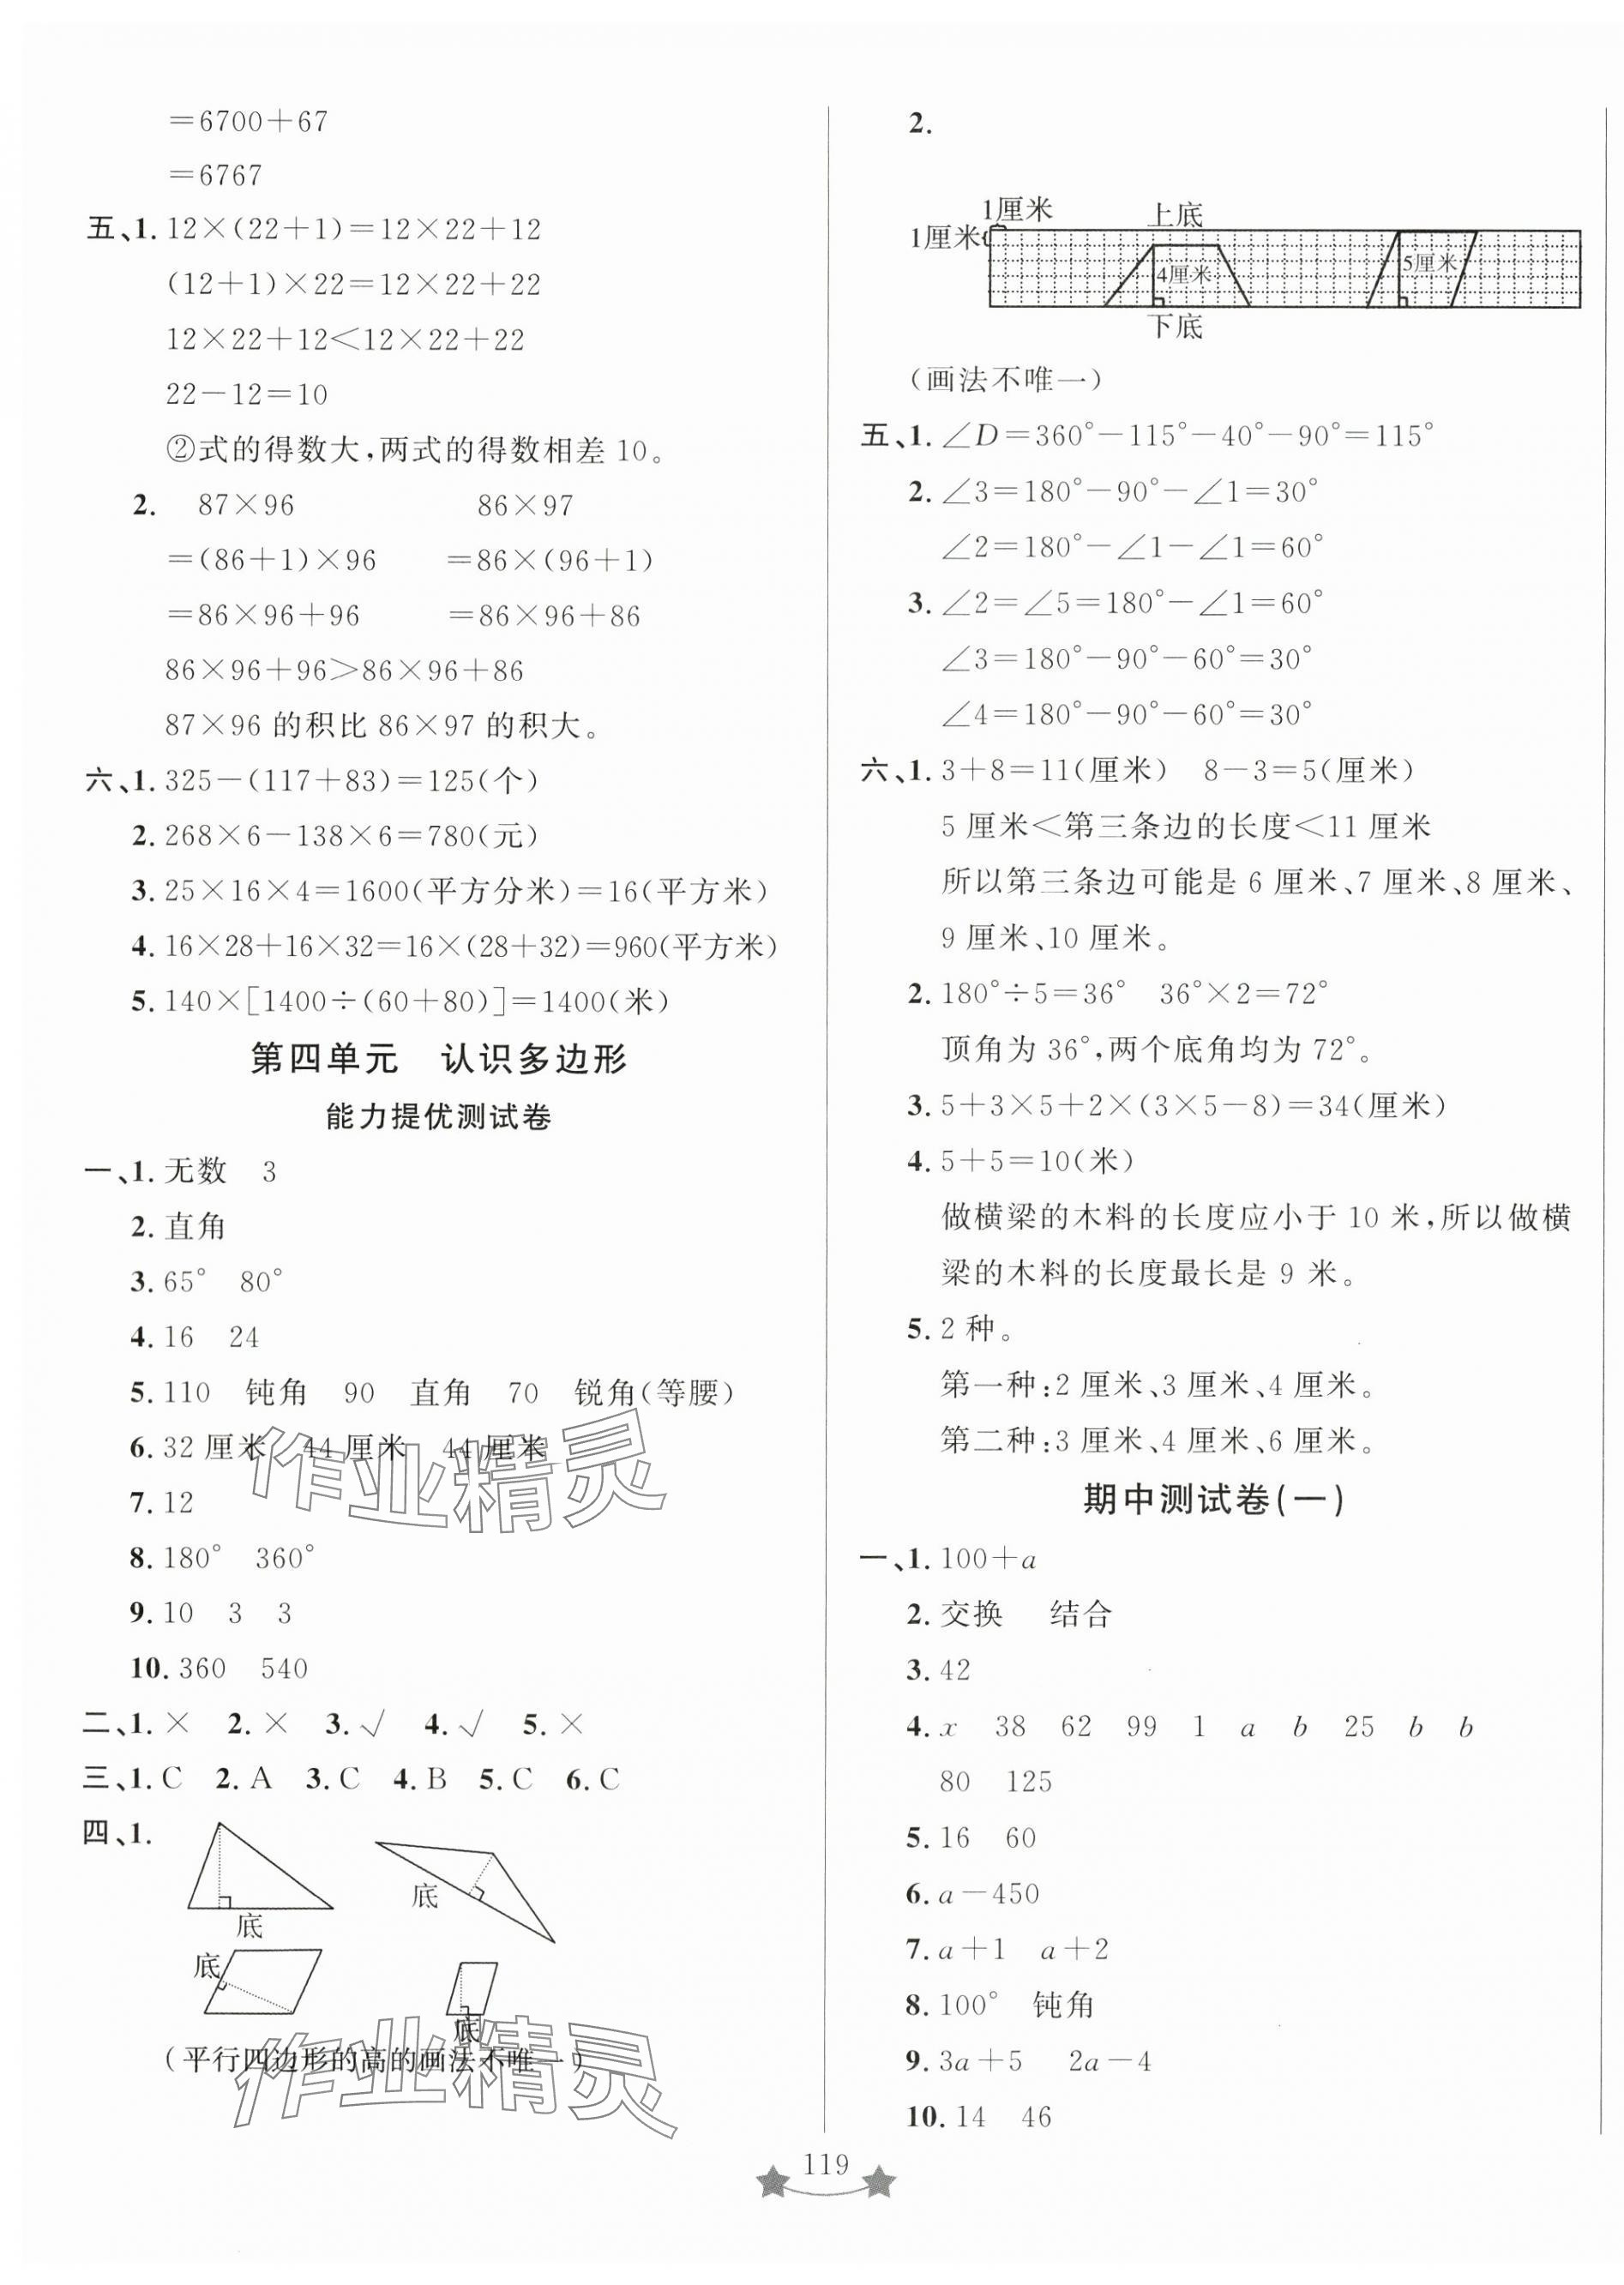 =6700+67
=6767
五、1. 12×(22+1)=12×22+12
(12+1)×22=12×22+22
12×22+12<12×22+22
22-12=10
②式的得数大,两式的得数相差 10。
2. 87×96 86×97
=(86+1)×96 =86×(96+1)
=86×96+96 =86×96+86
86×96+96>86×96+86
87×96 的积比 86×97 的积大。
六、1. 325-(117+83)=125(个)
2. 268×6-138×6=780(元)
3. 25×16×4=1600(平方分米)=16(平方米)
4. 16×28+16×32=16×(28+32)=960(平方米)
5. 140×[1400÷(60+80)]=1400(米)
第四单元 认识多边形
能力提优测试卷
一、1. 无数 3
2. 直角
3. 65° 80°
4. 16 24
5. 110 钝角 90 直角 70 锐角(等腰)
6. 32 厘米 44 厘米 44 厘米
7. 12
8. 180° 360°
9. 10 3 3
10. 360 540
二、1. × 2. × 3. √ 4. √ 5. ×
三、1. C 2. A 3. C 4. B 5. C 6. C
四、1.
底
底
底
底
(平行四边形的高的画法不唯一)
作业精灵
作业精灵
2.
1厘米
上底
1厘米
4厘米
5厘米
下底
(画法不唯一)
五、1. ∠D=360°-115°-40°-90°=115°
2. ∠3=180°-90°-∠1=30°
∠2=180°-∠1-∠1=60°
3. ∠2=∠5=180°-∠1=60°
∠3=180°-90°-60°=30°
∠4=180°-90°-60°=30°
六、1. 3+8=11(厘米) 8-3=5(厘米)
5 厘米<第三条边的长度<11 厘米
所以第三条边可能是 6 厘米、7 厘米、8 厘米、
9 厘米、10 厘米。
2. 180°÷5=36° 36°×2=72°
顶角为 36°,两个底角均为 72°。
3. 5+3×5+2×(3×5-8)=34(厘米)
4. 5+5=10(米)
做横梁的木料的长度应小于 10 米,所以做横
梁的木料的长度最长是 9 米。
5. 2 种。
第一种:2 厘米、3 厘米、4 厘米。
第二种:3 厘米、4 厘米、6 厘米。
期中测试卷(一)
一、1. 100+a
2. 交换 结合
3. 42
4. x 38 62 99 1 a b 25 b b
80 125
5. 16 60
6. a-450
7. a+1 a+2
8. 100° 钝角
9. 3a+5 2a-4
10. 14 46
119